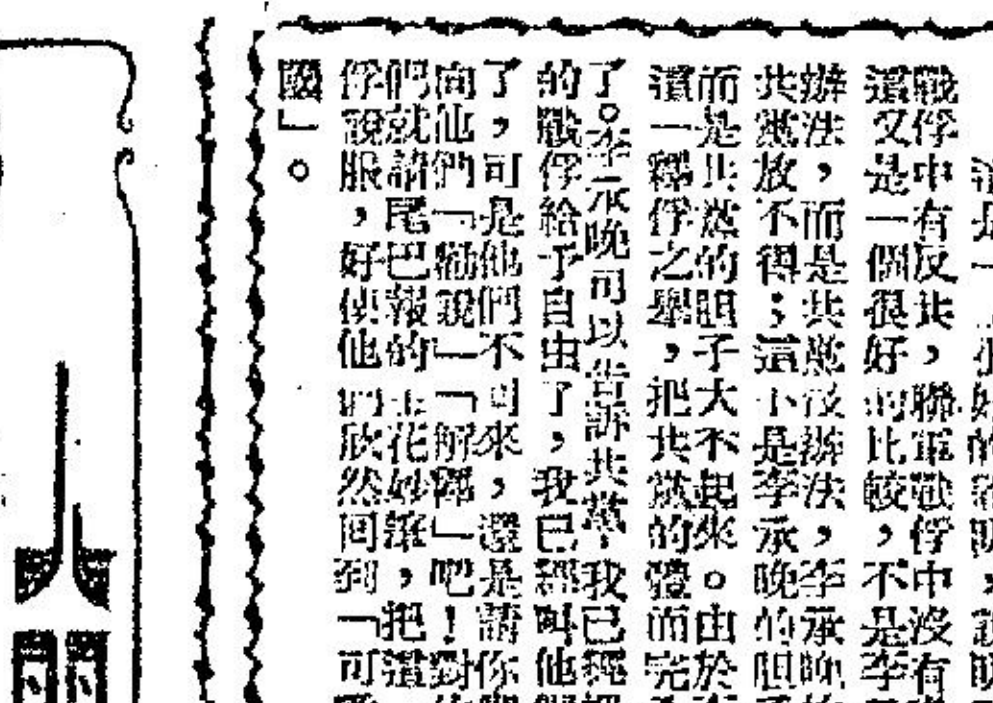 戰俘中有反共，聯軍戰俘中沒有
這又是一個很好的比較，不是李
辦法，而是共黨沒辦法，李承晚
共黨放不得；這不是李承晚的胆
而是共黨的胆子大不起來。由於
這一釋俘之舉，把共黨的體面完
了。李承晚可以告訴共黨，我已經
的戰俘給予自由了，我已經叫他
了，可是他們不可來，還是請你
向他們「勸說」「解釋」吧！對
們就請尾巴報的生花妙筆，把這
俘說服，好使他們欣然回到「可
國」。